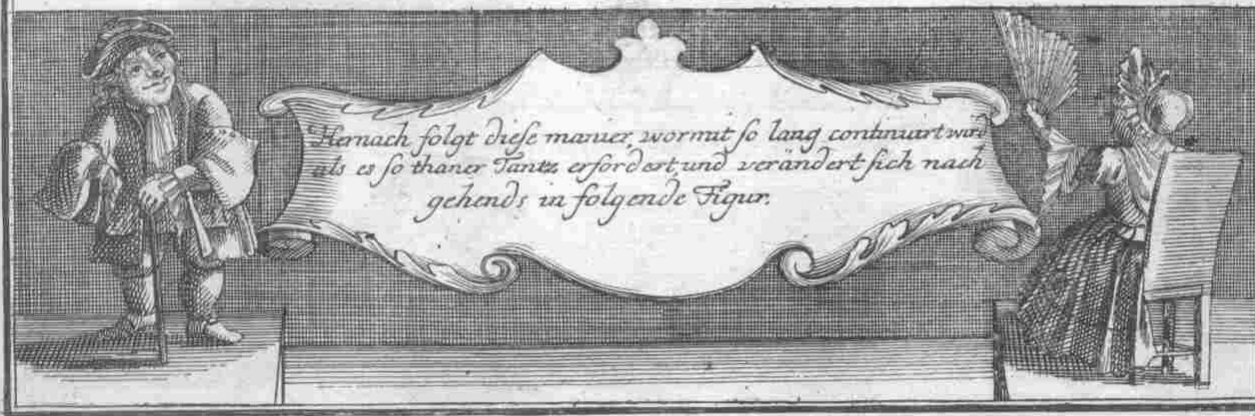 Hernach folgt diese manier, wormit so lang continuirt wird
als es so thaner Tantz erfordert, und verändert sich nach
gehends in folgende Figur.